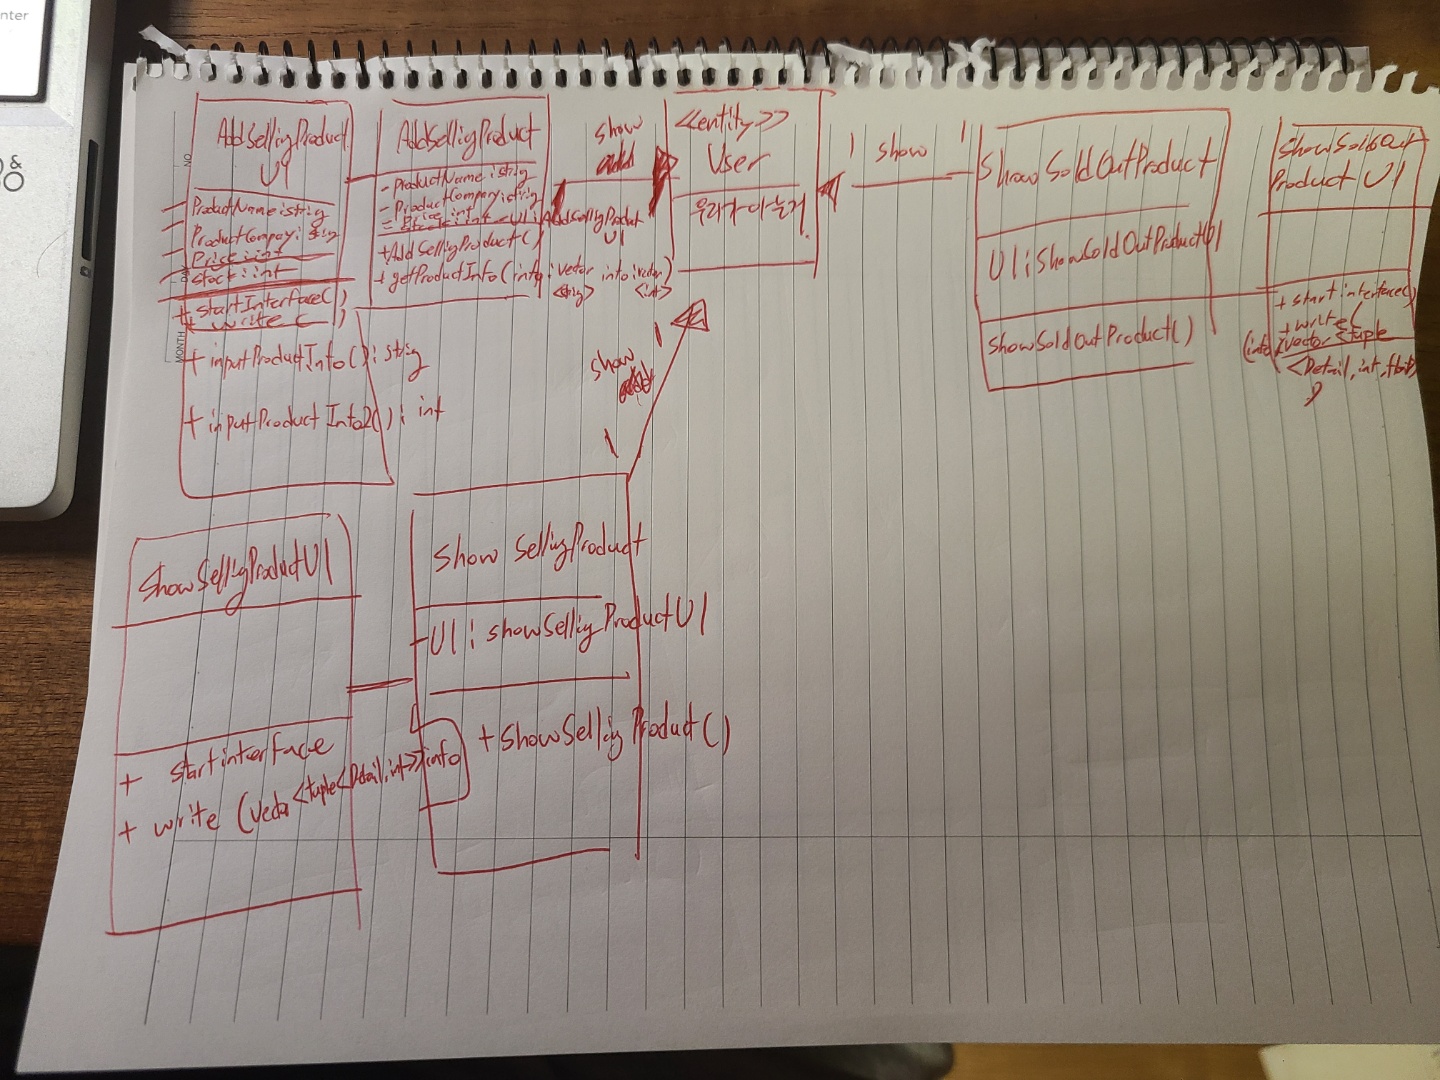 nter
&
NO
MONTH
AddSelligProduct
UI
ProductName:strig
ProductCompay: strig
Price:int
Stock:int
+ startInterface()
+ write ( )
+ inputProductInfo() : strig
+ inputProductInfo2() : int
AddSelligProduct
- ProductName:strig
- ProductCompany:strig
- UI:AddSelligProduct
UI
+AddSelligProduct()
+ getProductInfo(info:vector
<strig>
info:vector)
<int>
show
<<entity>>
User
1 show 1
ShowSoldOutProduct
UI:ShowSoldOutProductUI
ShowSoldOutProduct()
ShowSoldOut
Product UI
+ startinterface()
+write(
(info:vector<tuple
<Detail,int,float>
)
1
show
1
ShowSelligProductUI
+ startinterface
+ write (Vector<tuple<Detail,int>>info
Show SelligProduct
-UI : showSelligProductUI
+ShowSelligProduct()